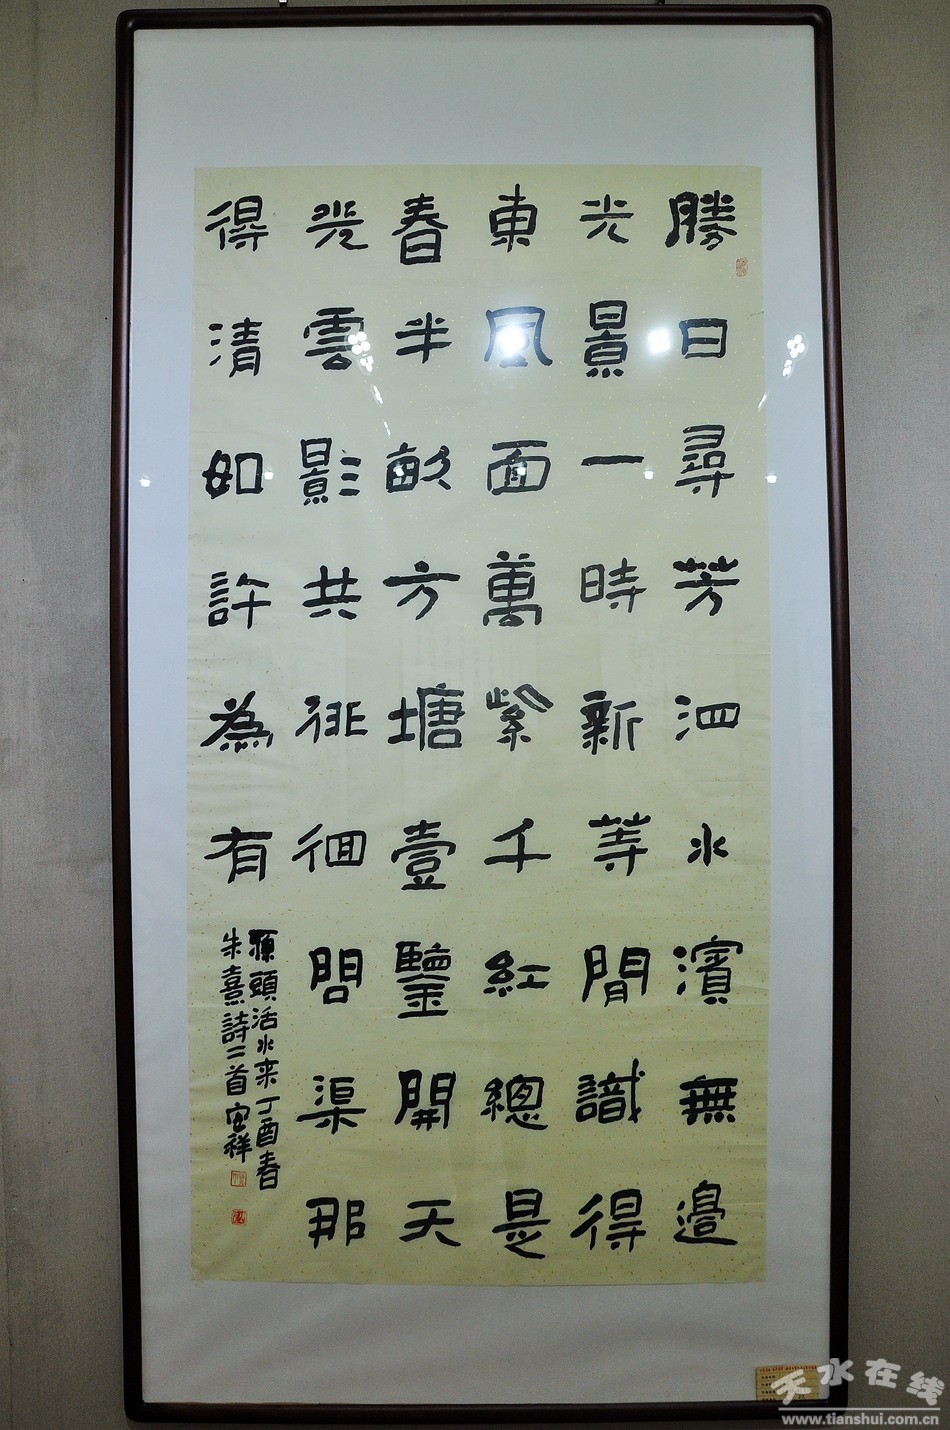 勝日尋芳泗水濱無邊
光景一時新等閒識得
東風面萬紫千紅總是
春半畝方塘壹鑒開天
光雲影共徘徊問渠那
得清如許為有
源頭活水来丁酉春
朱熹詩二首宏祥
天水在线
www.tianshui.com.cn